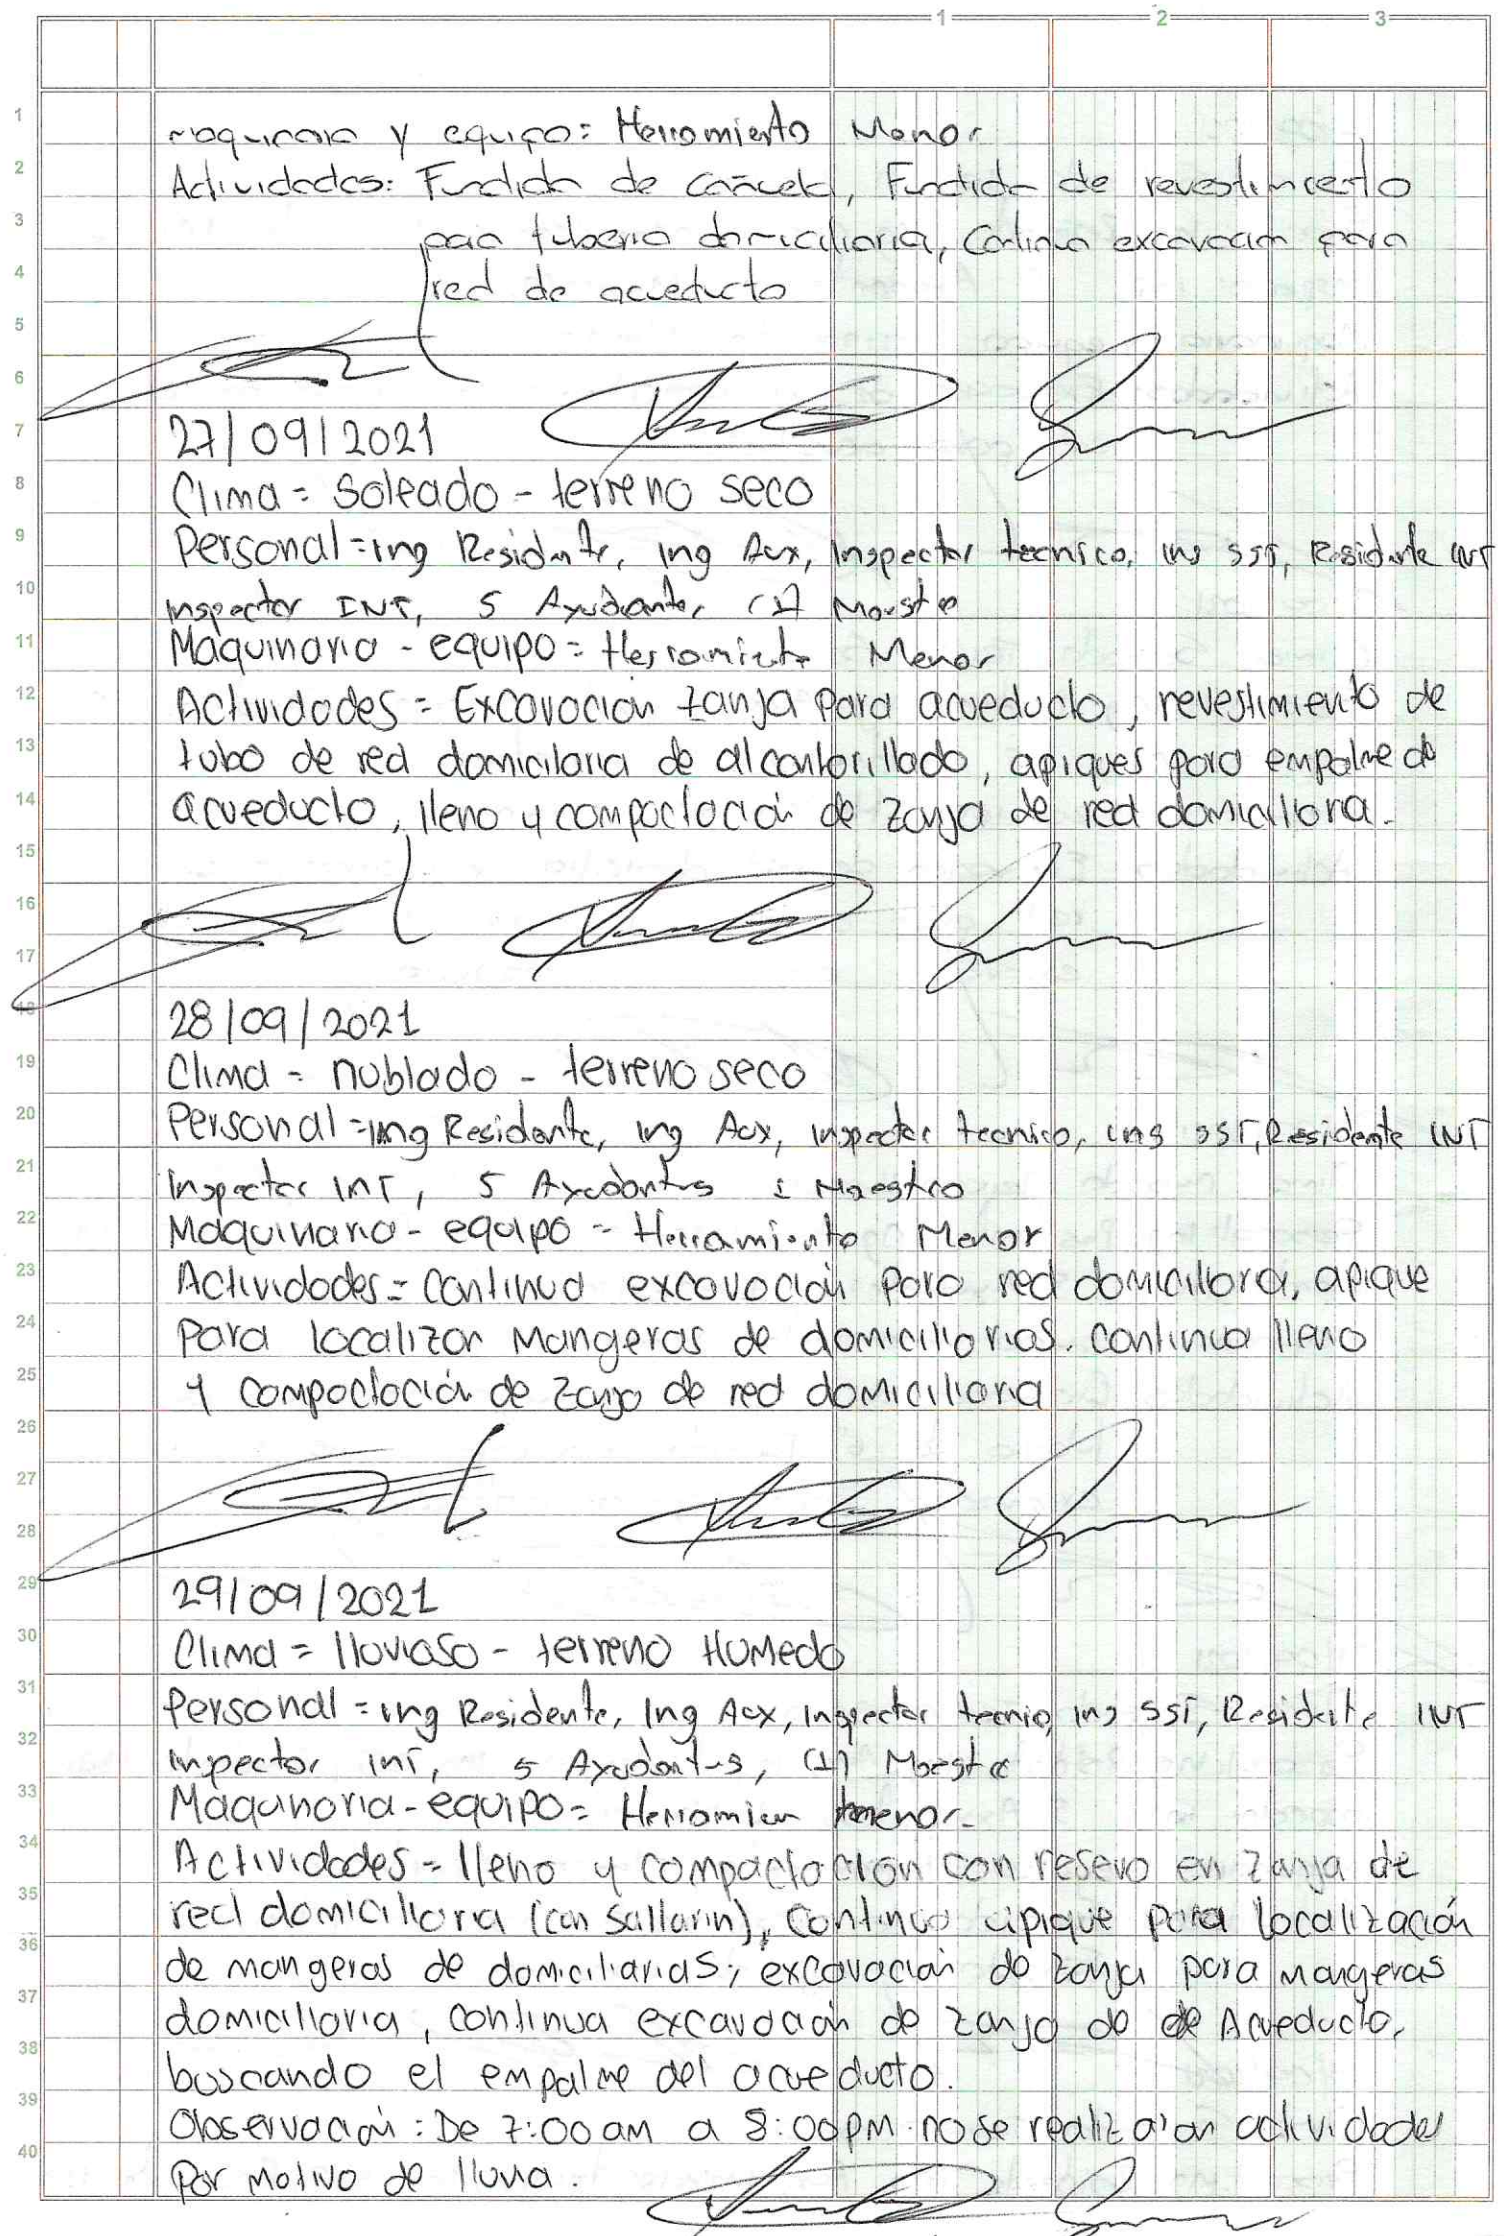 1 2 3
1 maquinaria y equipo: Herramienta Menor
2 Actividades: Fundida de cañuela, Fundida de revestimiento
3 para tuberia domiciliaria, Continua excavacion para
4 red de acueducto
5
6
7 27/09/2021
8 Clima = Soleado - terreno seco
9 Personal = ing Residente, ing Aux, Inspector tecnico, ing SST, Residente INT
10 inspector INT, 5 Ayudante, (1) Maestro
11 Maquinaria - equipo = Herramienta Menor
12 Actividades = Excavación zanja para acueducto, revestimiento de
13 tubo de red domicilaria de alcantarillado, apiques para empalme de
14 acueducto, lleno y compactación de zanja de red domiciliaria.
15
16
17
18 28/09/2021
19 Clima - nublado - terreno seco
20 Personal = ing Residente, ing Aux, inspector tecnico, ing SST, Residente INT
21 Inspector INT, 5 Ayudantes 1 Maestro
22 Maquinaria - equipo = Herramienta Menor
23 Actividades = Continua excavación para red domiciliara, apique
24 para localizar Mangeras de domiciliarias. continua lleno
25 y compactación de zanja de red domiciliaria
26
27
28
29 29/09/2021
30 Clima = lluvioso - terreno Humedo
31 Personal = ing Residente, Ing Aux, Inspector tecnio, ing SST, Residente INT
32 inspector INT, 5 Ayudantes, (1) Maestro
33 Maquinaria - equipo = Herramien menor.
34 Actividades = lleno y compactación con resevo en zanja de
35 red domiciliaria (con sallarin), continua apique para localización
36 de mangeras de domiciliarias, excavación de zanja para mangeras
37 domiciliaria, continua excavación de zanja de de Acueducto,
38 buscando el empalme del acueducto.
39 Observación: De 7:00 am a 8:00 pm no se realizaron actividades
40 Por motivo de lluvia.